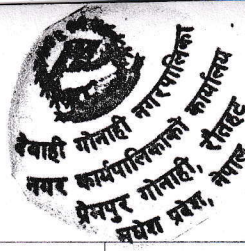 देवाही गोनाही नगरपालिका
नगर कार्यपालिकाको कार्यालय
प्रेमपुर गोनाही, रौतहट
मधेश प्रदेश, नेपाल